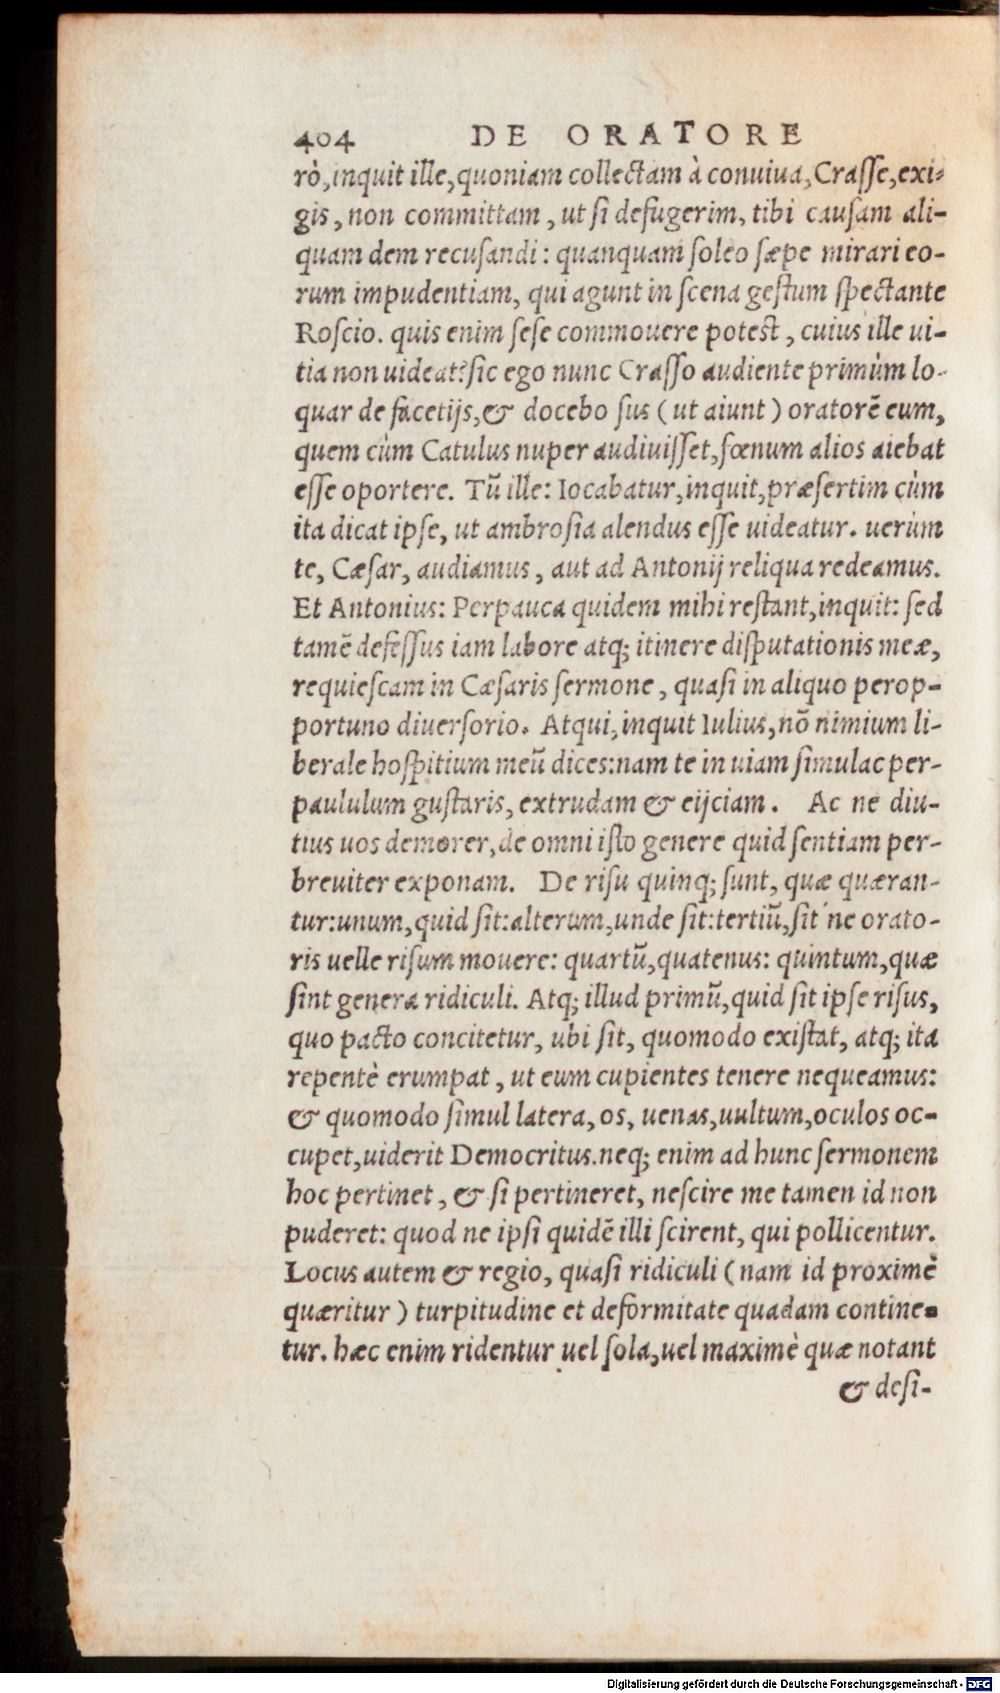 404 DE ORATORE
rò, inquit ille, quoniam collectam à conuiua, Crasse, exi-
gis, non committam, ut si defugerim, tibi causam ali-
quam dem recusandi: quanquam soleo sæpe mirari eo-
rum impudentiam, qui agunt in scena gestum spectante
Roscio. quis enim sese commouere potest, cuius ille ui-
tia non uideat? sic ego nunc Crasso audiente primùm lo-
quar de facetijs, & docebo sus (ut aiunt) oratorẽ eum,
quem cùm Catulus nuper audiuisset, fœnum alios aiebat
esse oportere. Tũ ille: Iocabatur, inquit, præsertim cùm
ita dicat ipse, ut ambrosia alendus esse uideatur. uerùm
te, Cæsar, audiamus, aut ad Antonij reliqua redeamus.
Et Antonius: Perpauca quidem mihi restant, inquit: sed
tamẽ defessus iam labore atq; itinere disputationis meæ,
requiescam in Cæsaris sermone, quasi in aliquo perop-
portuno diuersorio. Atqui, inquit Iulius, nõ nimium li-
berale hospitium meũ dices: nam te in uiam simulac per-
paululum gustaris, extrudam & eijciam. Ac ne diu-
tius uos demorer, de omni isto genere quid sentiam per-
breuiter exponam. De risu quinq; sunt, quæ quæran-
tur: unum, quid sit: alterum, unde sit: tertiũ, sit ne orato-
ris uelle risum mouere: quartũ, quatenus: quintum, quæ
sint genera ridiculi. Atq; illud primũ, quid sit ipse risus,
quo pacto concitetur, ubi sit, quomodo existat, atq; ita
repentè erumpat, ut eum cupientes tenere nequeamus:
& quomodo simul latera, os, uenas, uultum, oculos oc-
cupet, uiderit Democritus. neq; enim ad hunc sermonem
hoc pertinet, & si pertineret, nescire me tamen id non
puderet: quod ne ipsi quidẽ illi scirent, qui pollicentur.
Locus autem & regio, quasi ridiculi (nam id proximè
quæritur) turpitudine et deformitate quadam contine-
tur. hæc enim ridentur uel sola, uel maximè quæ notant
& desi-
Digitalisierung gefördert durch die Deutsche Forschungsgemeinschaft - DFG